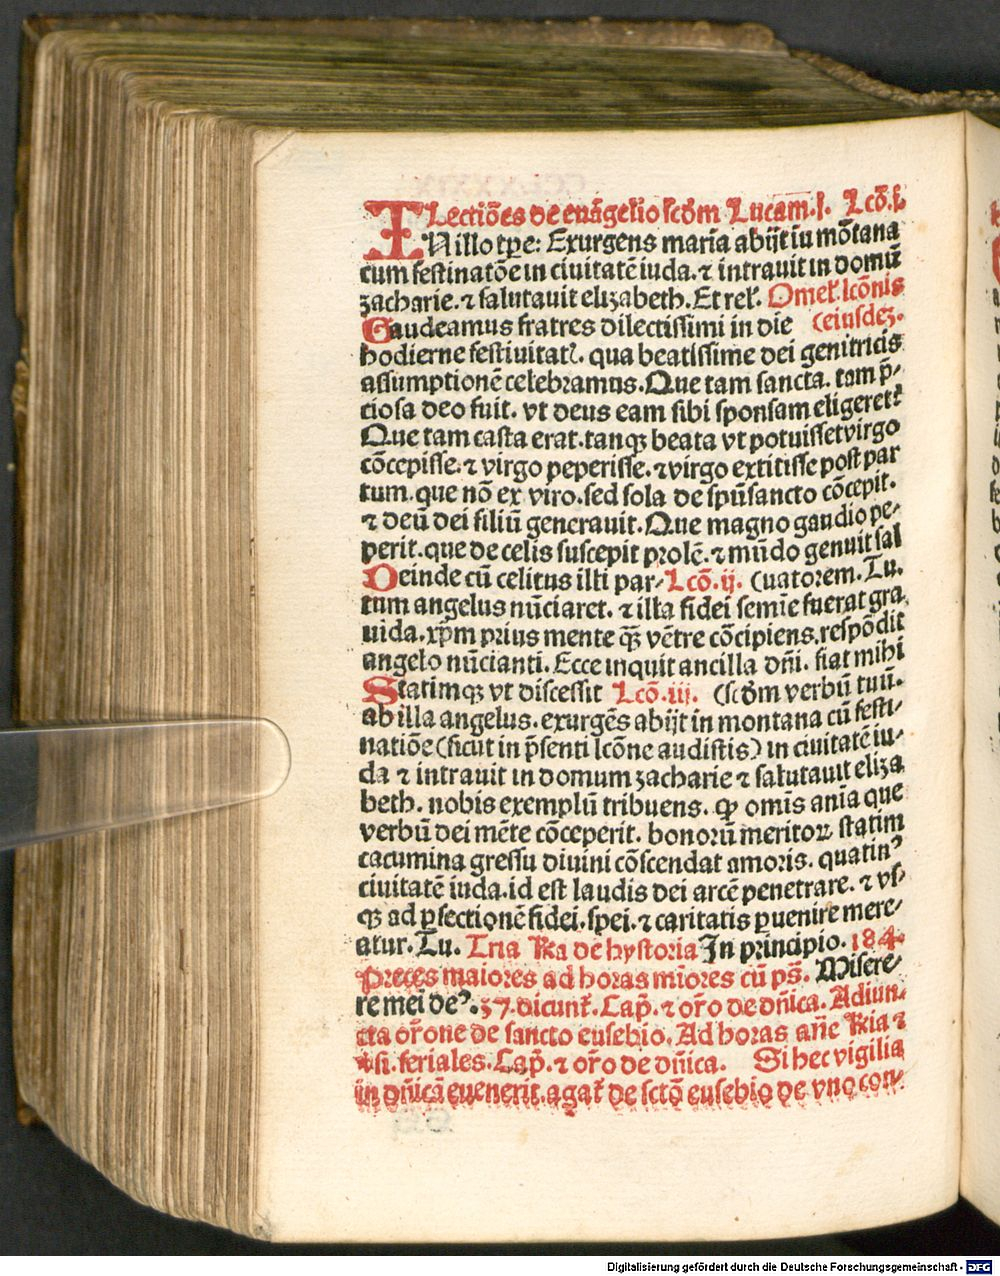 Lectiões de euãgelio scďm Lucam.j. Lcõ.j.
IN illo tp̄e: Exurgens maria abijt in mõtana
cum festinatõe in ciuitatē iuda.⁊ intrauit in domũ
zacharie.⁊ salutauit elizabeth. Et rel̕. Omel̕. lcõnis
Gaudeamus fratres dilectissimi in die (eiusdeʒ.
hodierne festiuitatꝭ. qua beatissime dei genitricis
assumptionē celebramus. Que tam sancta. tam p̄-
ciosa deo fuit. vt deus eam sibi sponsam eligeret:
Que tam casta erat. tanqꝫ beata vt potuisset virgo
cõcepisse.⁊ virgo peperisse.⁊ virgo extitisse post par
tum. que nõ ex viro. sed sola de spũsancto cõcepit.
⁊ deũ dei filiũ generauit. Que magno gaudio pe-
perit. que de celis suscepit prolē.⁊ mũdo genuit sal
Deinde cũ celitus illi par- Lcõ.ij. (uatorem. Tu.
tum angelus nũciaret. ⁊ illa fidei semīe fuerat gra
uida. xp̄m prius mente qꝫ vētre cõcipiens. respõdit
angelo nũcianti. Ecce inquit ancilla dñi. fiat mihi
Statimqꝫ vt discessit Lcõ.iij. (scďm verbũ tuũ.
ab illa angelus. exurgēs abijt in montana cũ festi-
natiõe (sicut in p̄senti lcõne audistis) in ciuitatē iu-
da ⁊ intrauit in domum zacharie ⁊ salutauit eliza
beth. nobis exemplũ tribuens. ꝙ omīs anīa que
verbũ dei mēte cõceperit. bonorũ meritoꝝ statim
cacumina gressu diuini cõscendat amoris. quatinꝰ
ciuitatē iuda. id est laudis dei arcē penetrare. ⁊ vs-
qꝫ ad ꝑfectionē fidei. spei. ⁊ caritatis ꝑuenire mere-
atur. Tu. Tria R̄a de hystoria In principio. 184
Preces maiores ad horas mīores cũ ps̄. Misere-
re mei deꝰ. 57. dicunt̕. Cap̄. ⁊ or̄o de dñica. Adiun-
cta or̄one de sancto eusebio. Ad horas añe R̄ia ⁊
v̕si. feriales. Cap̄. ⁊ or̄o de dñica. Si hec vigilia
in dñicā euenerit. agat̕ de scto eusebio de vno con-
Digitalisierung gefördert durch die Deutsche Forschungsgemeinschaft - DFG